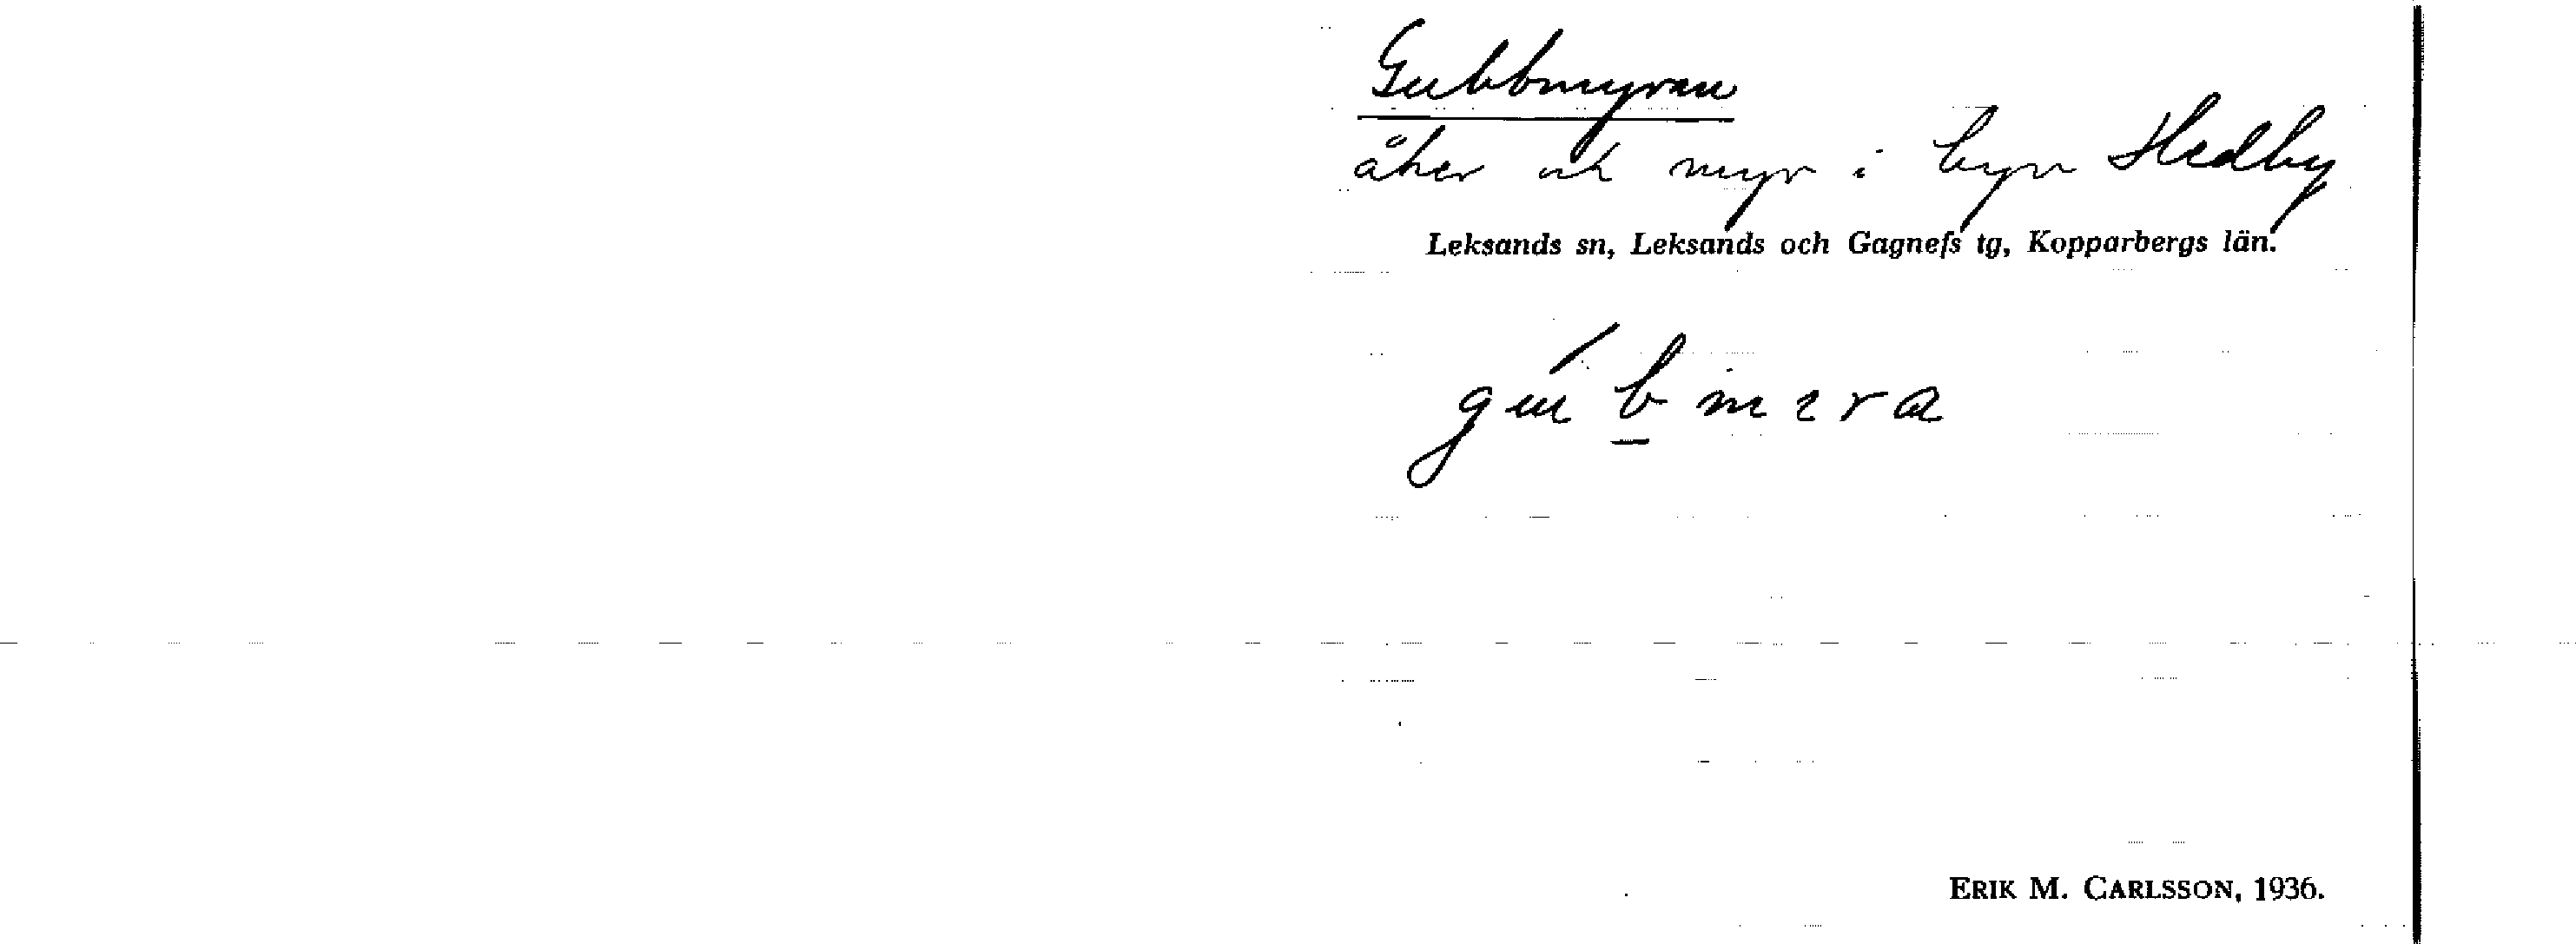 Gubbmyran
åker och myr i byn Hedby
Leksands sn, Leksands och Gagnefs tg, Kopparbergs län.
ERIK M. CARLSSON, 1936.